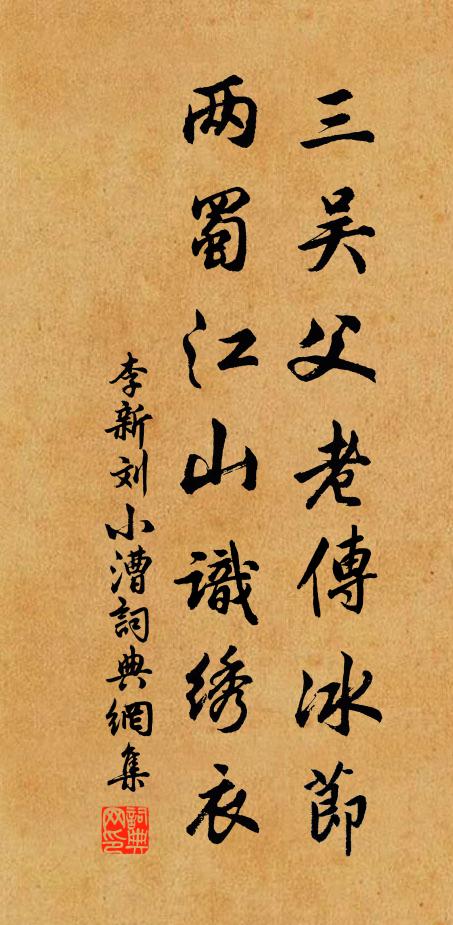 三吴父老傳冰節
两蜀江山識绣衣
李新刘小漕詞典網集
詞典网印